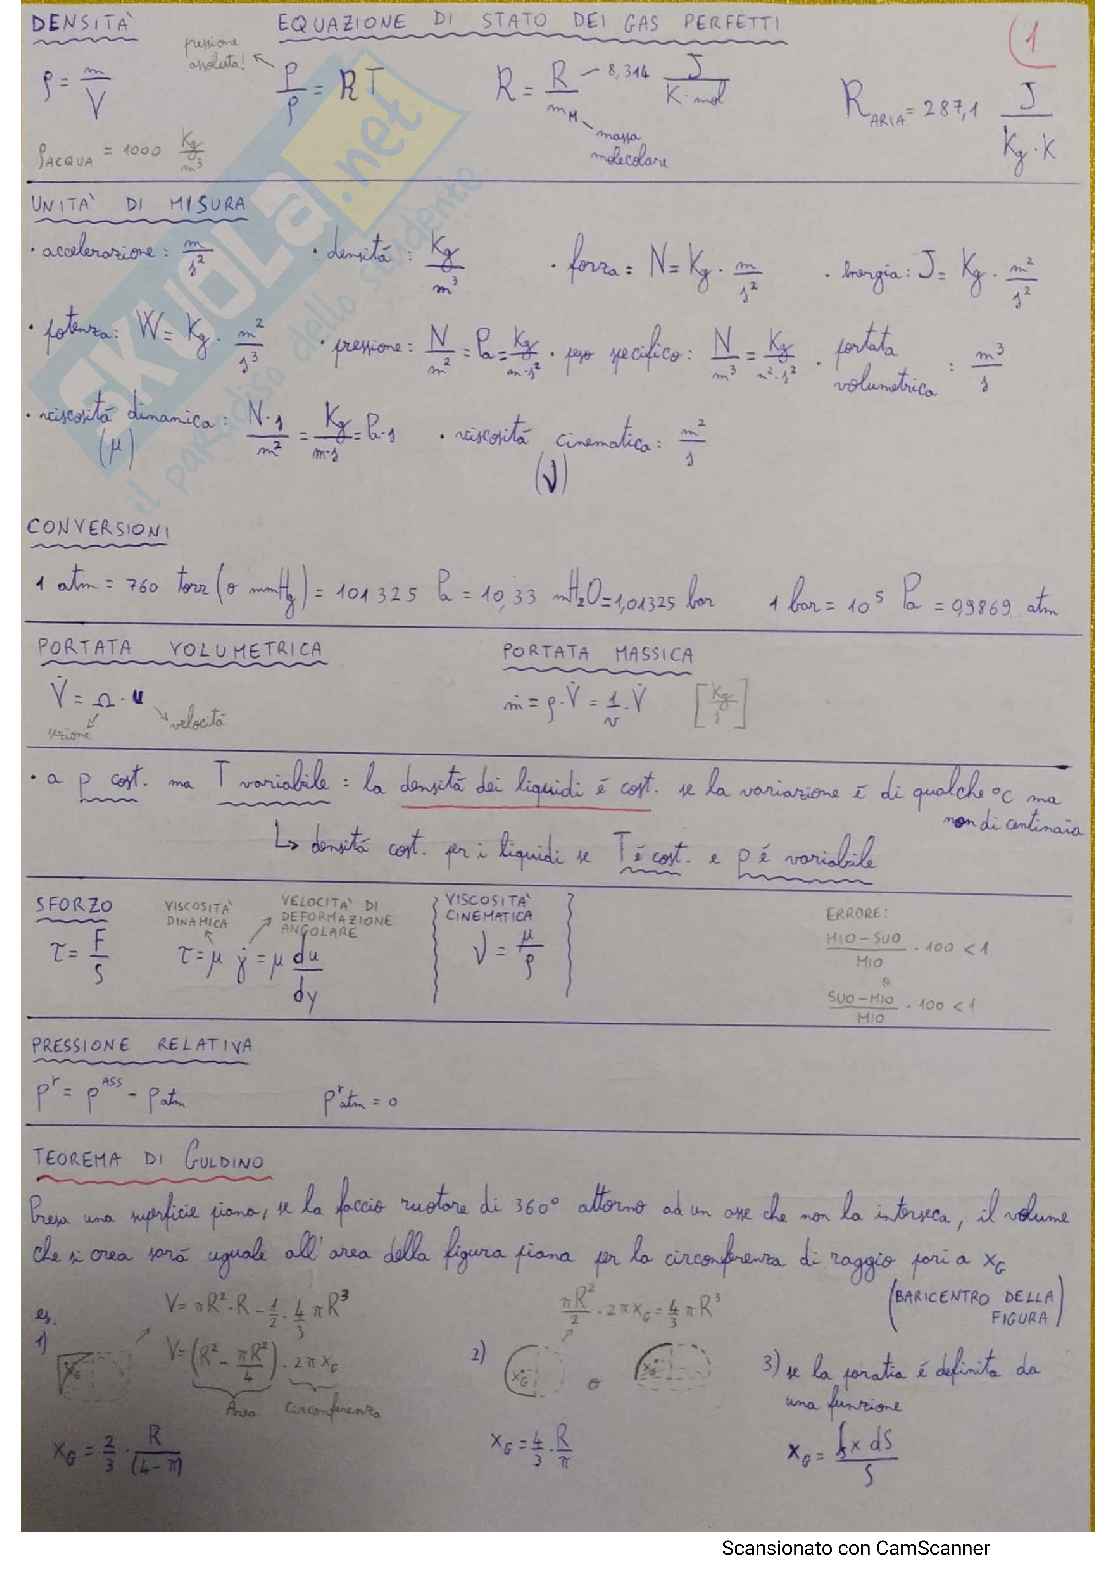 DENSITÀ
EQUAZIONE DI STATO DEI GAS PERFETTI
1
ρ = m/V
pressione assoluta!
p/ρ = RT
R = R/m_M
8,314 J/K·mol
massa molecolare
R_ARIA = 287,1 J/Kg·K
ρ_ACQUA = 1000 Kg/m³
UNITA' DI MISURA
· accelerazione: m/s²
· densitá: Kg/m³
· forza = N = Kg · m/s²
· Energia: J = Kg · m²/s²
· potenza: W = Kg · m²/s³
· pressione = N/m² = Pa = Kg/m·s²
· peso specifico: N/m³ = Kg/m²·s²
· portata volumetrica: m³/s
· viscositá dinamica: N·s/m² = Kg/m·s = Pa·s
(μ)
· viscositá cinematica: m²/s
(ν)
CONVERSIONI
1 atm = 760 torr (o mmHg) = 101325 Pa = 10,33 mH₂O = 1,01325 bar
1 bar = 10⁵ Pa = 0,9869 atm
PORTATA VOLUMETRICA
PORTATA MASSICA
V̇ = Ω · u
sezione
velocitá
ṁ = ρ·V̇ = 1/v · V̇ [Kg/s]
· a p cost. ma T variabile = la densitá dei liquidi é cost. se la variazione é di qualche °C ma
non di centinaia
↳ densitá cost. per i liquidi se T é cost. e p é variabile
SFORZO
VISCOSITA' DINAMICA
VELOCITA' DI DEFORMAZIONE ANGOLARE
VISCOSITA' CINEMATICA
ERRORE:
τ = F/S
τ = μ γ̇ = μ du/dy
ν = μ/ρ
MIO-SUO/MIO · 100 < 1
o
SUO-MIO/MIO · 100 < 1
PRESSIONE RELATIVA
p^r = p^ASS - p_atm
p^r_atm = 0
TEOREMA DI GULDINO
Presa una superficie piana, se la faccio ruotare di 360° attorno ad un asse che non la interseca, il volume
che si crea sará uguale all'area della figura piana per la circonferenza di raggio pari a x_G
(BARICENTRO DELLA FIGURA)
es.
1)
V = πR²·R - 1/2 · 4/3 πR³
V = (R² - πR²/4) · 2πx_G
Area
circonferenza
x_G
x_G = 2/3 · R/(4-π)
2)
πR²/2 · 2πx_G = 4/3 πR³
x_G
o
x_G
x_G = 4/3 · R/π
3) se la paratia é definita da
una funzione
x_G = ∫_S x dS/S
SKUOLA.net
il paradiso dello studente
Scansionato con CamScanner